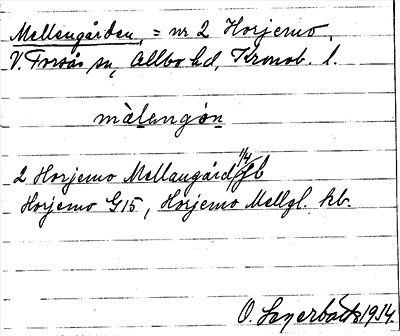 Mellengården, = nr 2 Horjemo,
V. Torsås sn, Allbo hd, Kronob. l.
màlengó̱n
2 Horjemo Mellangård 1/4 jb
Horjemo G15, Horjemo Mellgl. kb.
O. Lagerbäck 1914